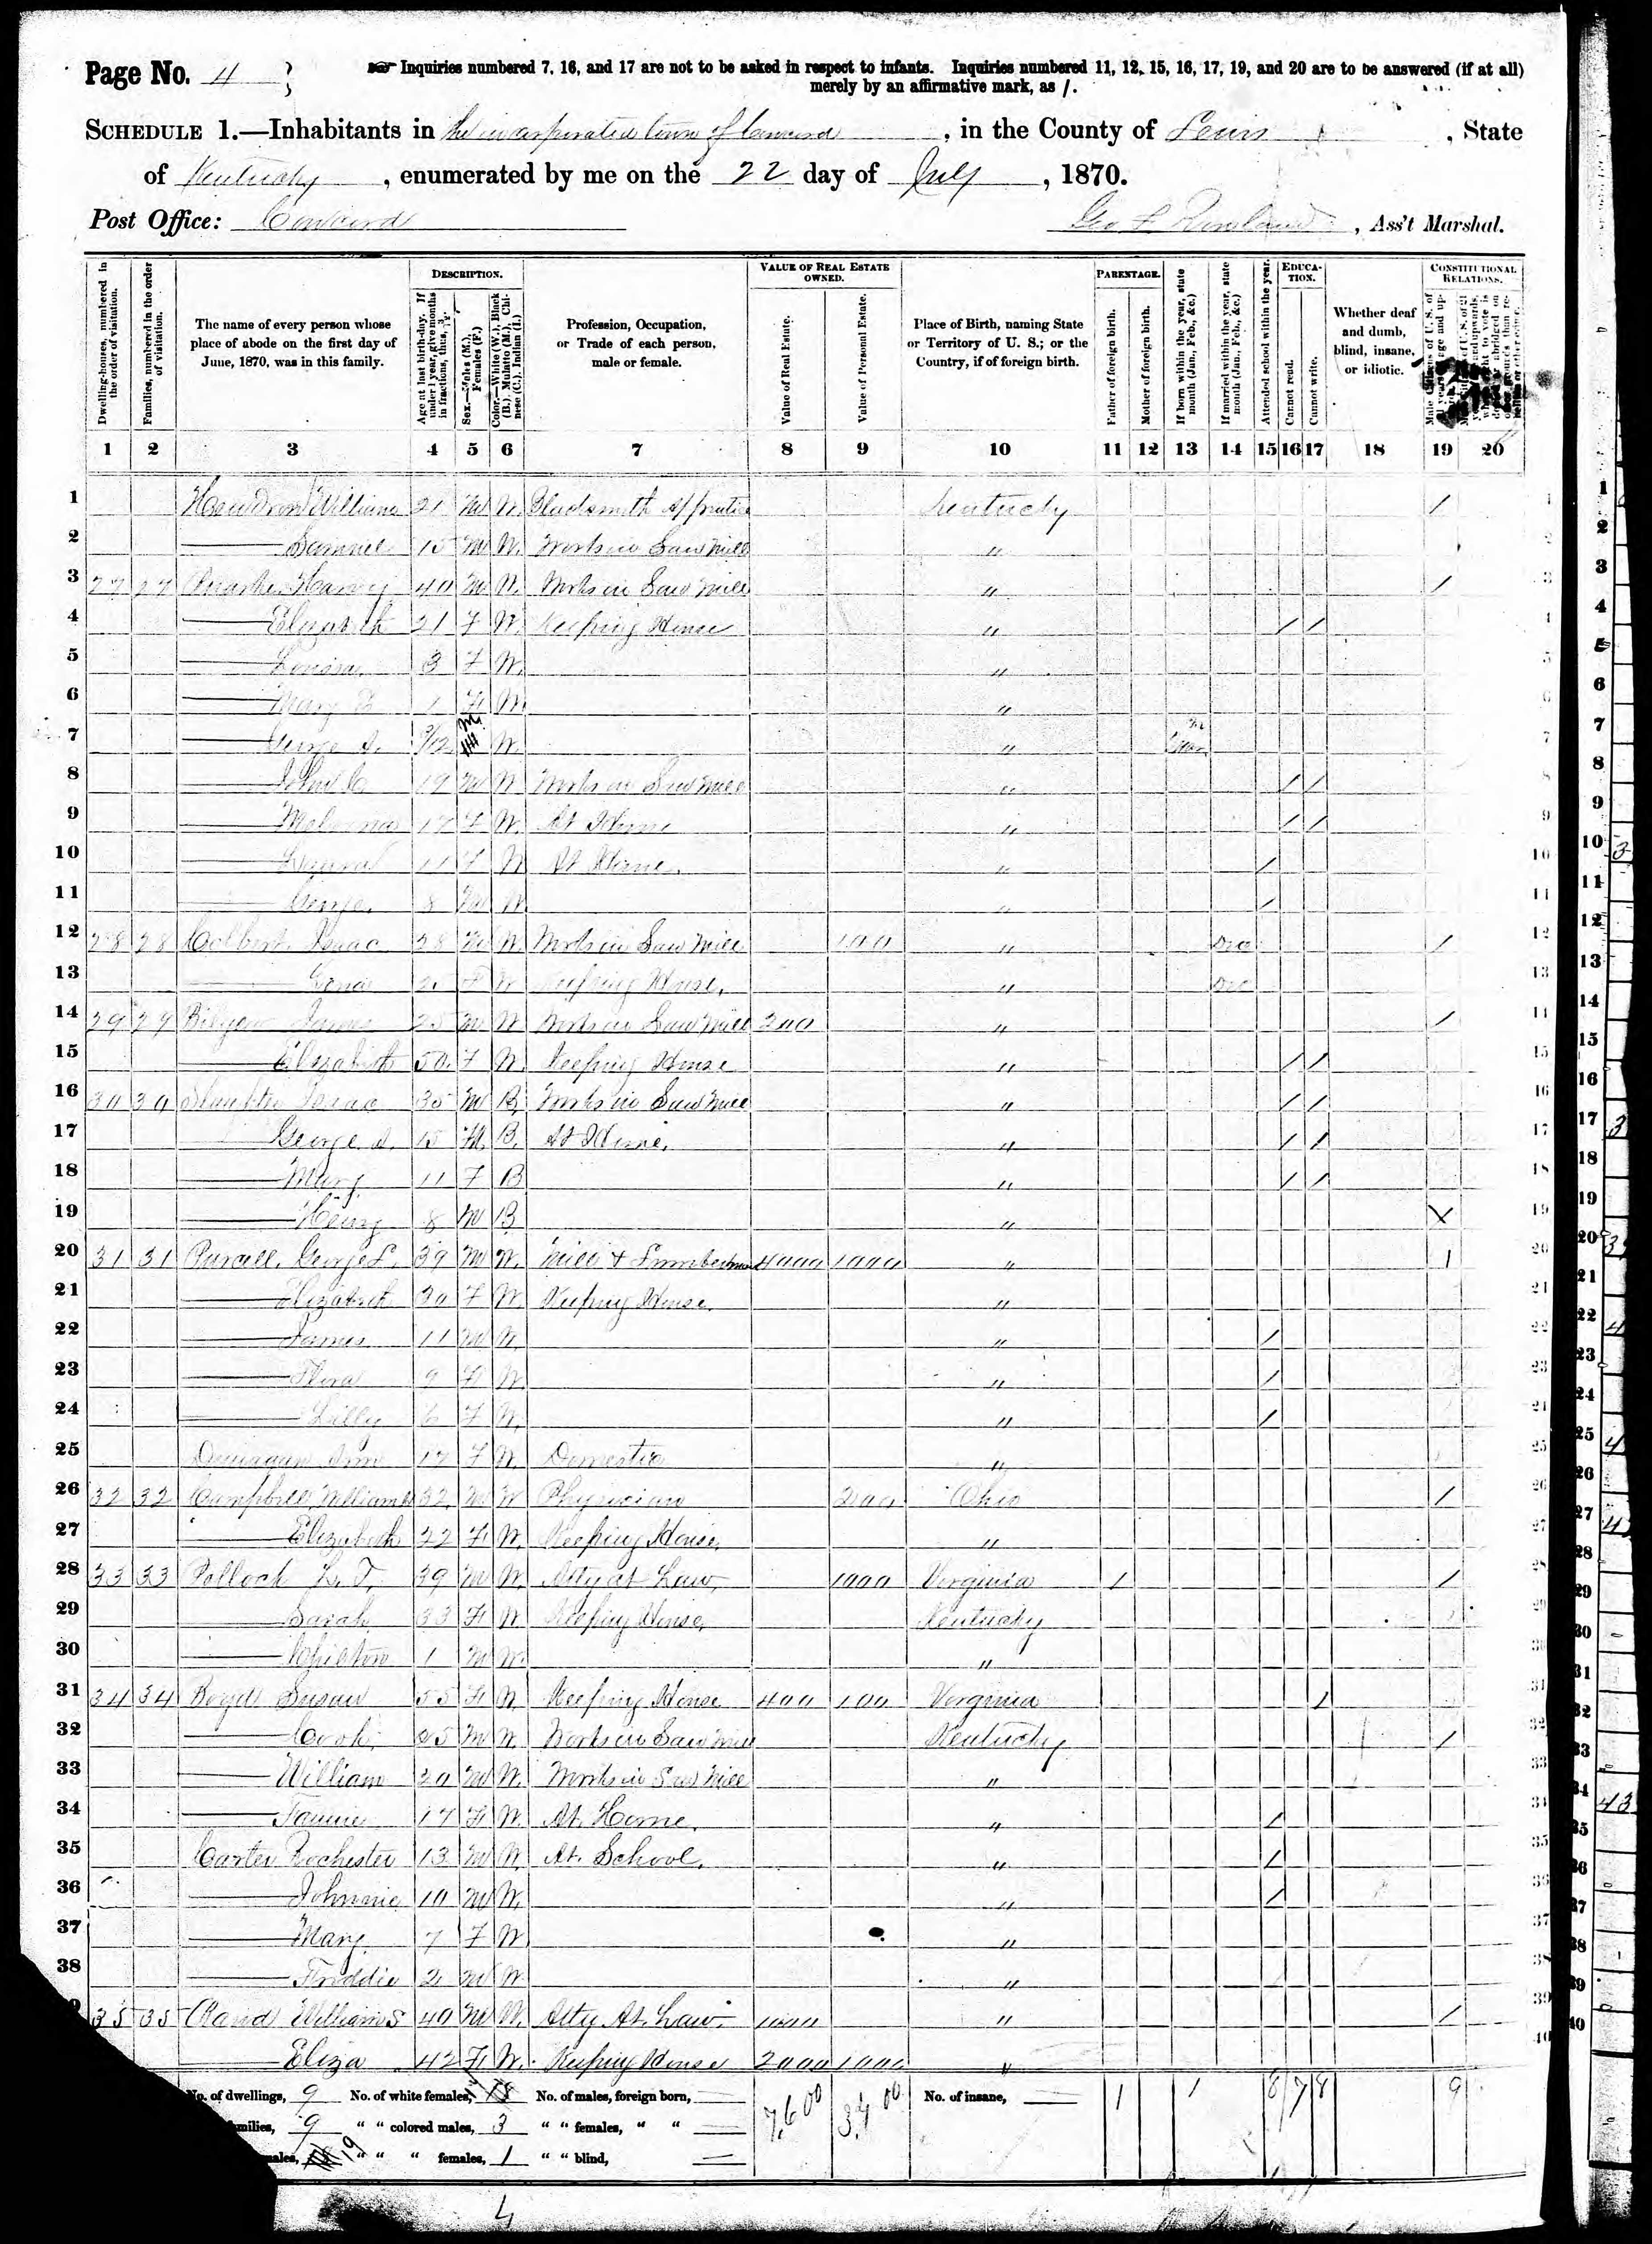 Page No. 4
Inquiries numbered 7, 16, and 17 are not to be asked in respect to infants. Inquiries numbered 11, 12, 15, 16, 17, 19, and 20 are to be answered (if at all)
merely by an affirmative mark, as /.
SCHEDULE 1.—Inhabitants in the incorporated town of Concord, in the County of Lewis, State
of Kentucky, enumerated by me on the 22 day of July, 1870.
Post Office: Concord Geo , Ass't Marshal.
Dwelling-houses, numbered in the order of visitation.
Families, numbered in the order of visitation.
The name of every person whose place of abode on the first day of June, 1870, was in this family.
DESCRIPTION.
Age at last birth-day. If under 1 year, give months in fractions, thus, 3/12
Sex.—Males (M.), Females (F.)
Color.—White (W.), Black (B.), Mulatto (M.), Chinese (C.), Indian (I.)
Profession, Occupation, or Trade of each person, male or female.
VALUE OF REAL ESTATE OWNED.
Value of Real Estate.
Value of Personal Estate.
Place of Birth, naming State or Territory of U. S.; or the Country, if of foreign birth.
PARENTAGE.
Father of foreign birth.
Mother of foreign birth.
If born within the year, state month (Jan., Feb., &c.)
If married within the year, state month (Jan., Feb., &c.)
Attended school within the year.
EDUCATION.
Cannot read.
Cannot write.
Whether deaf and dumb, blind, insane, or idiotic.
CONSTITUTIONAL RELATIONS.
1 2 3 4 5 6 7 8 9 10 11 12 13 14 15 16 17 18 19 20
1 William 21 M W Blacksmith Apprentice Kentucky / 1
2 — Samuel 15 M W. Works in Saw Mill " 2
3 27 27 Harvey 40 M W. Works in Saw Mill " / 3
4 — Elizabeth 21 F W. Keeping House " / / 4
5 — Louisa 3 F W. " 5
6 — Mary 1 F W. " 6
7 — George A. /12 M W. " 7
8 — John C. 19 M W Works in Saw Mill " / / 8
9 — Malvina 17 F W. At Home " / / 9
10 — 11 F W At Home. " / 10
11 — George. 8 M W " / 11
12 28 28 Colbert Isaac 28 M W. Works in Saw Mill 100 " Dec / 12
13 — F W Keeping House. " Dec 13
14 29 29 James 25 M W Works in Saw Mill 200 " / 14
15 — Elizabeth 50. F W. Keeping House " / / 15
16 30 30 Isaac 35 M B. Works in Saw Mill " / / 16
17 — George A. 15 M. B. At Home. " / / 17
18 — Mary 11 F B " / / 18
19 — Henry 8 M B " X 19
20 31 31 Purcell, George L. 39 M W. Mill & Lumberman 4000 1000 " 1 20
21 — Elizabeth 30 F W. Keeping House. " 21
22 — James 11 M W. " / 22
23 — Flora 9 F W. " / 23
24 — Lilly 6 F W. " / 24
25 Ann 17 F W. Domestic " 25
26 32 32 Campbell, William 32. M W Physician 200 Ohio / 26
27 — Elizabeth 22 F W. Keeping House. " 27
28 33 33 Pollock L. T. 39 M W. Atty at Law, 1000 Virginia 1 / 28
29 — Sarah 33 F W. Keeping House, Kentucky 29
30 — 1 M W. " 30
31 34 34 Boyd Susan 55 F W. Keeping House 400 100 Virginia / 31
32 — 25 M W. Works in Saw Mill Kentucky / 32
33 — William 20 M W. Works in Saw Mill " 33
34 — Fannie 17 F W. At Home. " / 34
35 Carter Rochester 13 M W. At School. " / 35
36 — Johnnie 10 M W. " / 36
37 — Mary 7 F W " 37
38 — Freddie 2 M W. " 38
35 35 Rand William S 40 M W. Atty At. Law. 1000 " / 39
— Eliza 42 F W. Keeping House 2000 1000 " 40
No. of dwellings, 9 No. of white females, No. of males, foreign born, 76 00 34 00 No. of insane, 1 1 8 7 8 9
milies, 9 " " colored males, 3 " " females, " "
males, 19 " " " females, 1 " " blind,
4